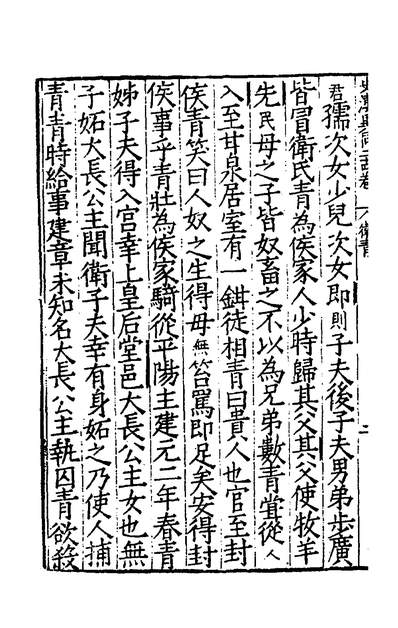 衛青
君孺次女少兒次女即則子夫後子夫男弟步廣
皆冒衛氏青為侯家人少時歸其父其父使牧羊
先民母之子皆奴畜之不以為兄弟數青甞從人
入至甘泉居室有一鉗徒相青曰貴人也官至封
侯青笑曰人奴之生得毋無笞罵即足矣安得封
侯事乎青壯為侯家騎從平陽主建元二年春青
姊子夫得入宮幸上皇后堂邑大長公主女也無
子妬大長公主聞衛子夫幸有身妬之乃使人捕
青青時給事建章未知名大長公主執囚青欲殺